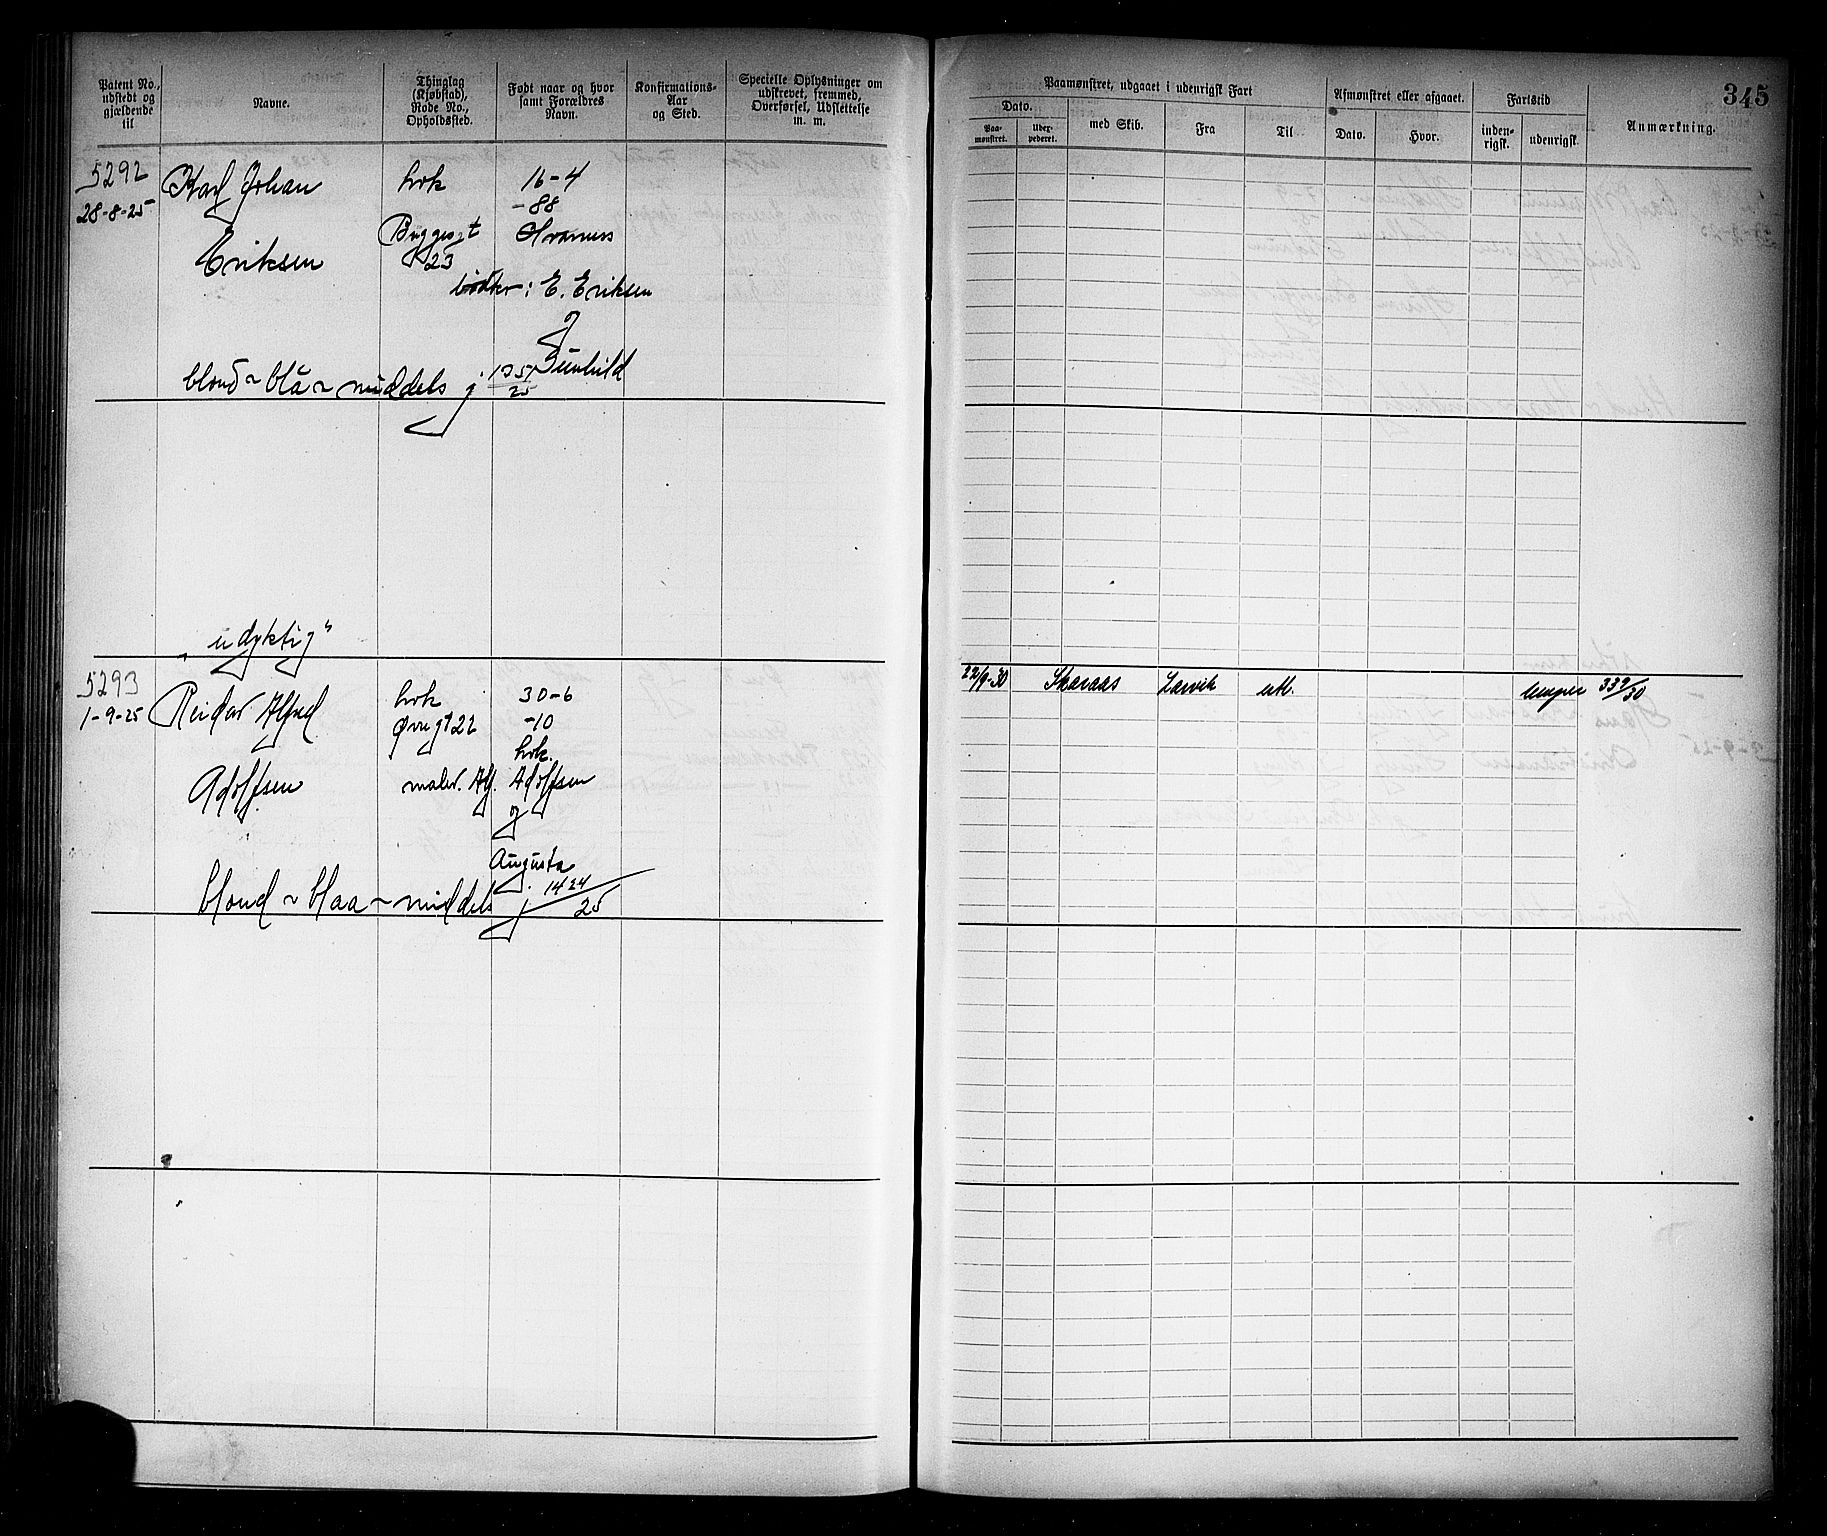 Patent No., udstedt og gjældende til
Navne.
Thinglag (Kjøbstad), Rode No., Opholdssted.
Født naar og hvor samt Forældres Navn.
Konfirmations-Aar og Sted.
Specielle Oplysninger om udskrevet, fremmed, Overførsel, Udslettelse m. m.
Paamønstret, udgaaet i udenrigsk Fart
Dato.
Paa-mønstret.
med Skib.
Fra
Til
Afmønstret eller afgaaet.
Dato.
Hvor.
Fartstid
inden-rigsk.
udenrigsk.
Anmærkning.
345
5292
28-8-25
Karl Johan
Eriksen
hvk
Byggesgt
23
16-4
-88
E. Eriksen
og
Gunhild
blond ~ blå ~ middels
25
"udyktig"
5293
1-9-25
Reidar Alfred
Adolfsen
hvk
Øvregt 22
30-6
-10
hvk.
maler. Alf. Adolfsen
og
Augusta
blond ~ blaa ~ middels
1424/25
22/9-30
Skaraas
Larvik
utl.
339/30